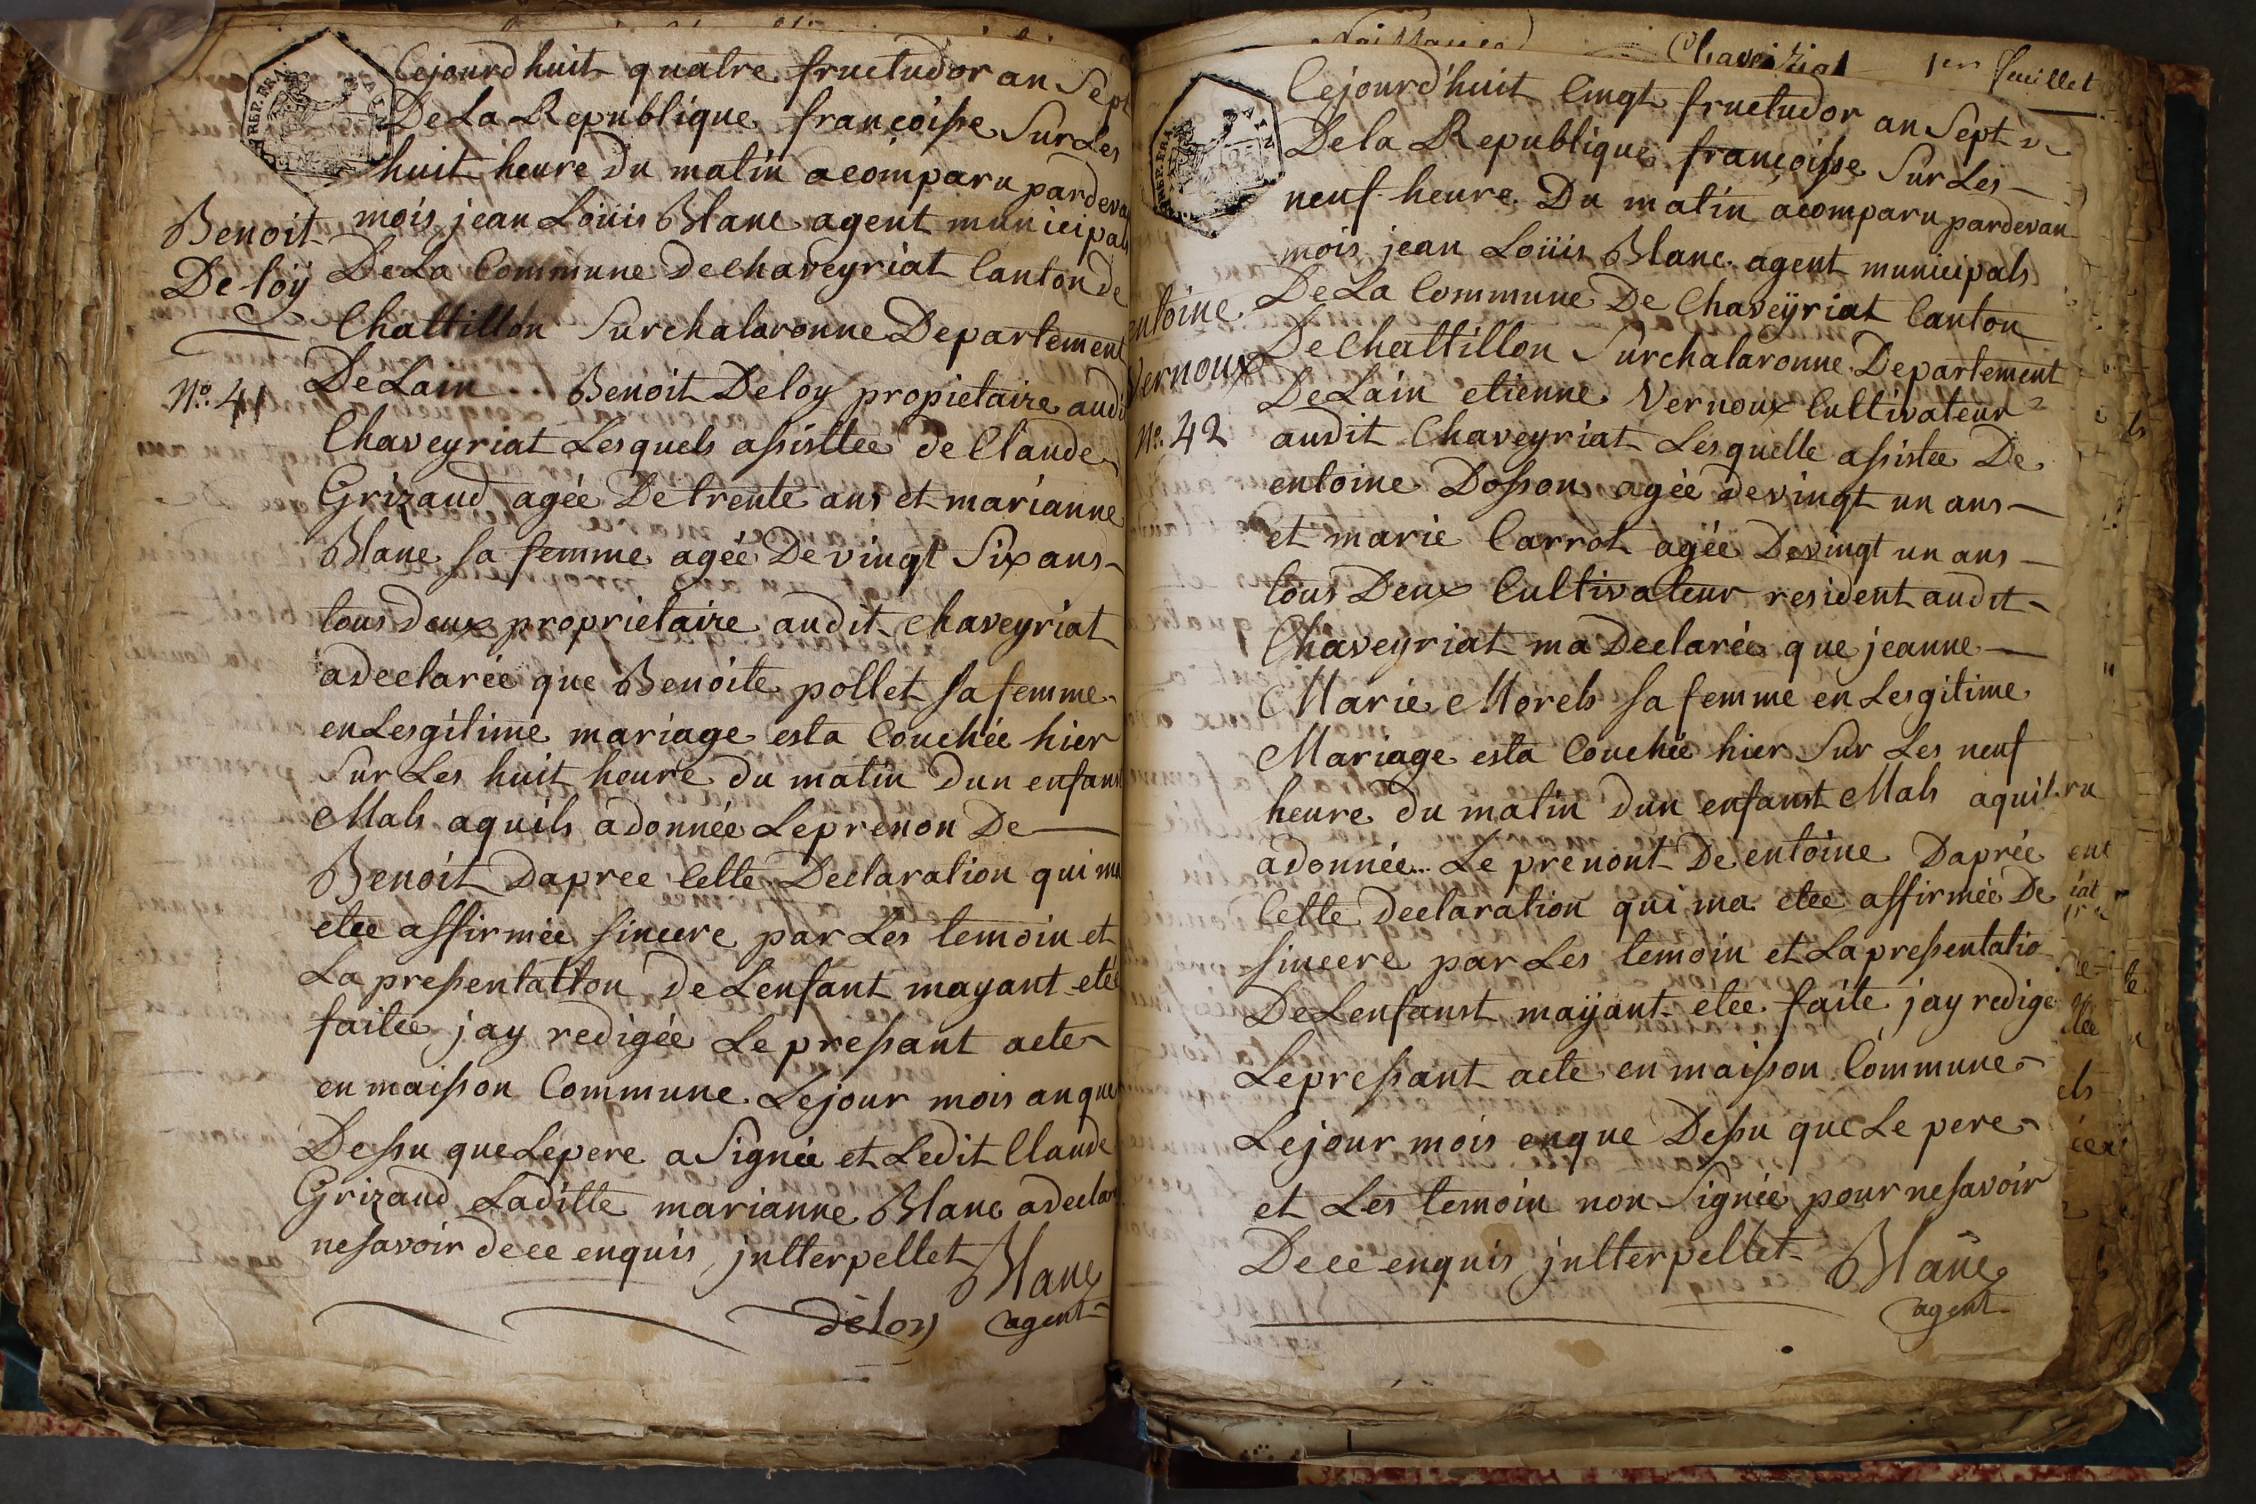 Cejourdhuit quatre fructudor an Sept
De La Republique françoisse Sur Les
huit heure du matin acomparu pardeva
mois jean Loüis Blanc agent municipals
De La Commune De chaveyriat Canton de
Chattillon Surchalaronne Departement
De Lain Benoit Deloy propietaire audit
Chaveyriat Lesquels assistee de Claude
Grizaud agée De trente ans et marianne
Blanc sa femme agée De vingt Six ans
tous deux proprietaire audit chaveyriat
a declarée que Benoite pollet sa femme
en Lesgitime mariage esta Couchée hier
Sur Les huit heure du matin dun enfant
Mals aquils adonnée Leprenon De
Benoit Dapree Cette Declaration qui ma
etee affirmée sincere par Les temoin et
La pressentatton de Lenfant mayant eteé
faitee jay redigée Le pressant acte
en maisson Commune Lejour mois an que
Dessu que Lepere a Signée et Ledit Claude
Grizaud Laditte marianne Blanc a declar
nesavoir dece enquis jntterpellet
Blanc
deloy agent
Benoit
De loÿ
No. 41
REP. FRA.
AIN
Chaveiriat 1er feuillet
Cejourd'huit Cingt fructudor an Sept
De la Republique françoisse Sur Les
neuf heure Du matin acomparu pardevan
mois jean Loüis Blanc agent municipals
De La Commune De Chaveÿriat Canton
De Chattillon Surchalaronne Departement
De Lain etienne Vernoux Cultivateur
audit Chaveyriat Lesquelle assistee De
entoine Dosson agée de vingt un ans
et marie Carrot agée De vingt un ans
tous Deux Cultivateur resident audit
Chaveyriat ma Declarée que jeanne
Marie Morels sa femme en Lesgitime
Mariage esta Couchée hier Sur Les neuf
heure du matin dun enfanst Mals aquils
adonnée Le prenont De entoine Daprée
Cette declaration qui ma etee affirmée De
sincere par Les temoin et La pressentatio
De Lenfanst maÿant etee faite jay redige
Le pressant acte en maisson Commune
Lejour mois enque Dessu que Le pere
et Les temoin non Signée pour nesavoir
Dece enquis jntterpellet
Blanc
agent
entoine
Vernoux
No. 42
REP. FRA.
AIN